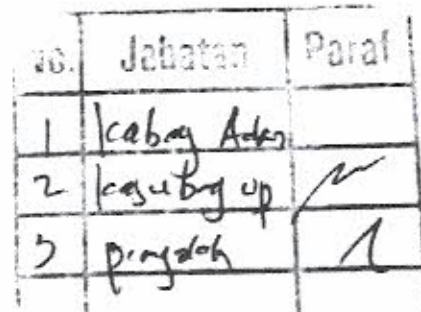 No. Jabatan Paraf
1 Kabag Adm
2 Kasubag up
3 pengolah